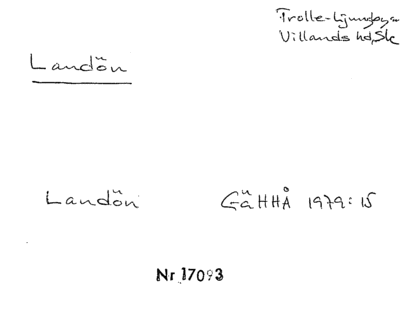 Trolle-Ljungby sn
Villands hd, Sk
Landön
Landön GäHHÅ 1979:15
Nr 17093